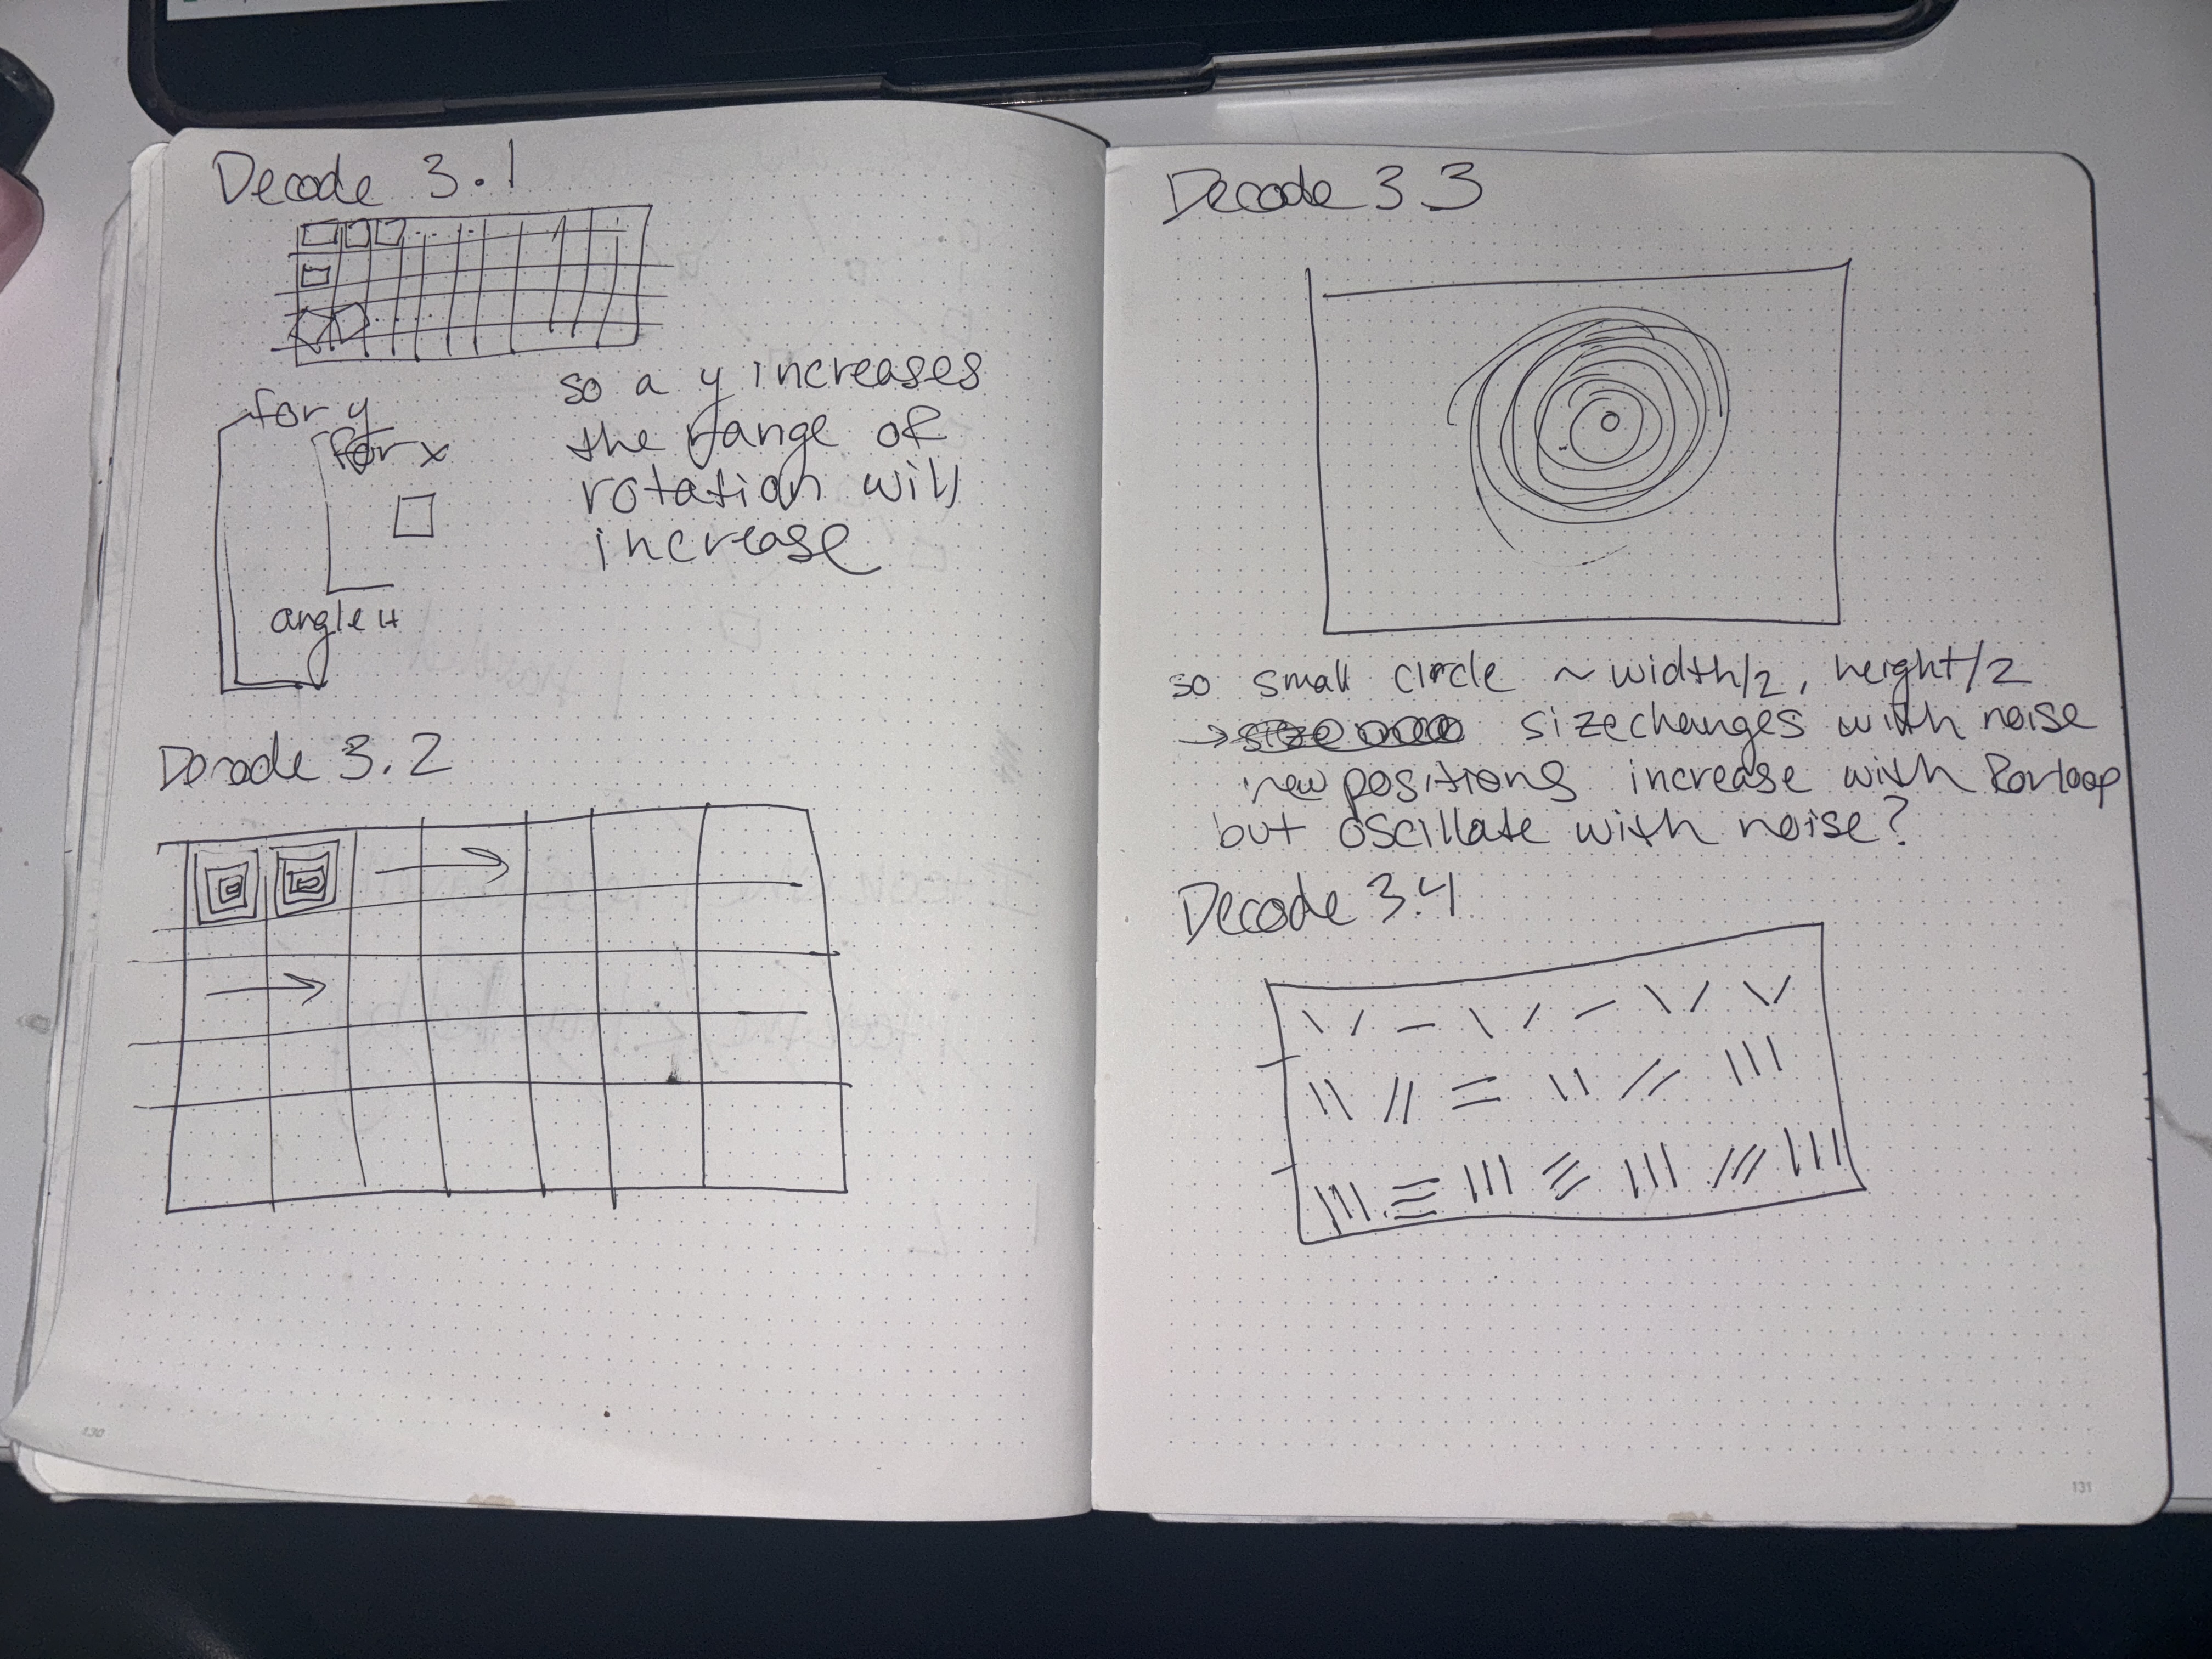 Decode 3.1
for y
for x
angle ++
so a y increases
the range of
rotation will
increase
Decode 3.2
130
Decode 3.3
so small circle ~ width/2, height/2
→ size changes with noise
new positions increase with for loop
but oscillate with noise?
Decode 3.4
131